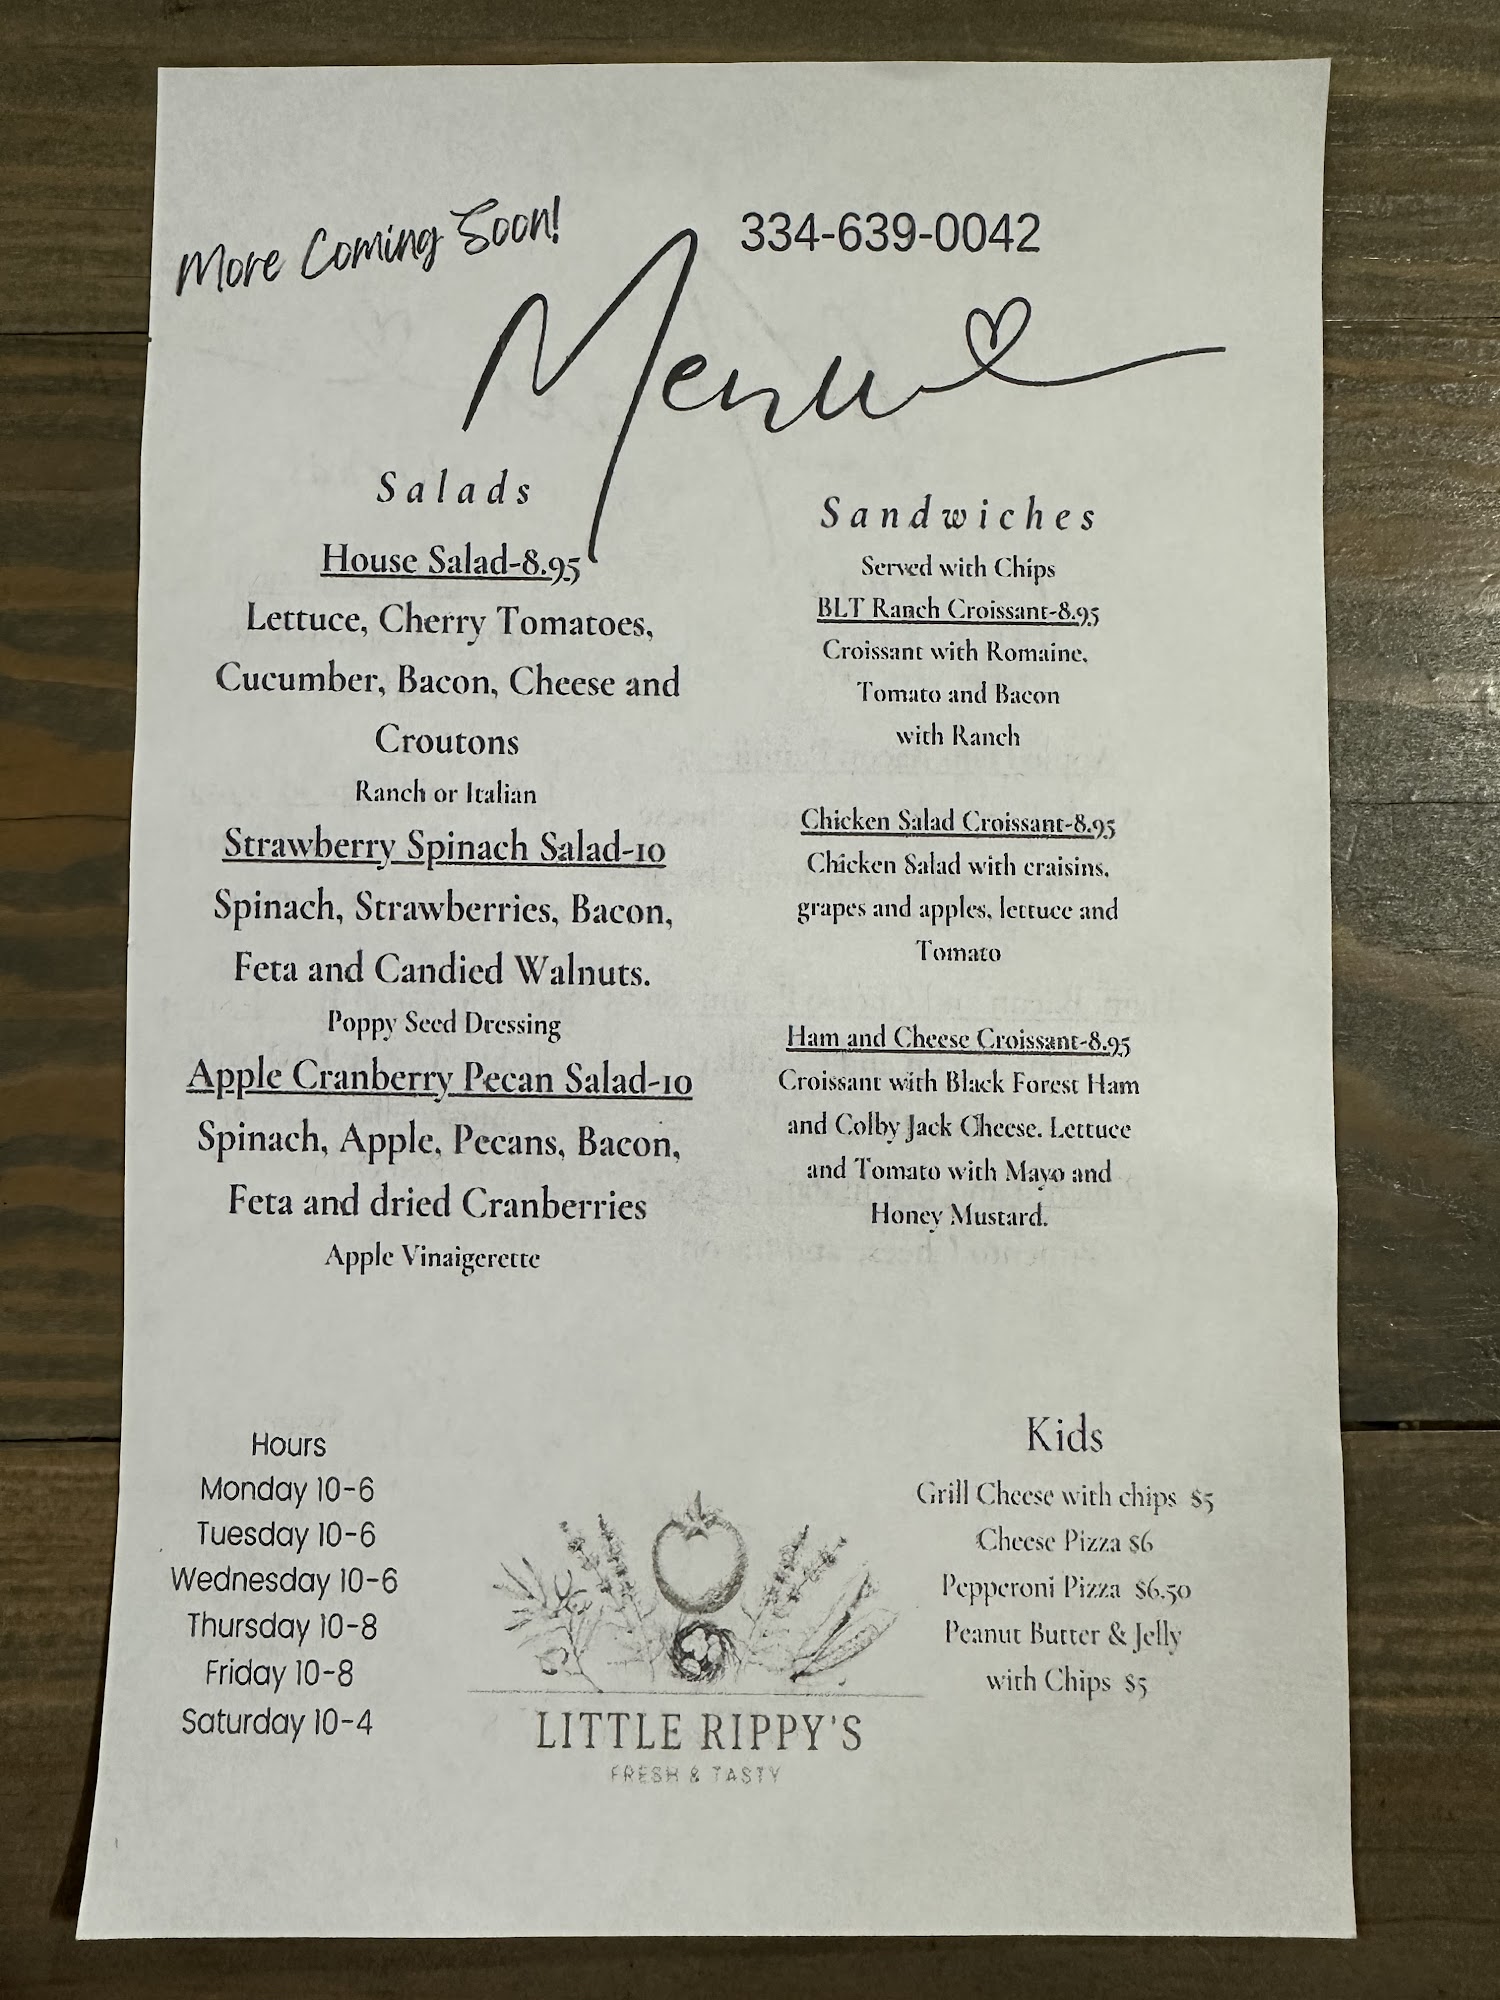 More Coming Soon!
334-639-0042
Menu
Salads
House Salad-8.95
Lettuce, Cherry Tomatoes,
Cucumber, Bacon, Cheese and
Croutons
Ranch or Italian
Strawberry Spinach Salad-10
Spinach, Strawberries, Bacon,
Feta and Candied Walnuts.
Poppy Seed Dressing
Apple Cranberry Pecan Salad-10
Spinach, Apple, Pecans, Bacon,
Feta and dried Cranberries
Apple Vinaigerette
Sandwiches
Served with Chips
BLT Ranch Croissant-8.95
Croissant with Romaine,
Tomato and Bacon
with Ranch
Chicken Salad Croissant-8.95
Chicken Salad with craisins,
grapes and apples, lettuce and
Tomato
Ham and Cheese Croissant-8.95
Croissant with Black Forest Ham
and Colby Jack Cheese. Lettuce
and Tomato with Mayo and
Honey Mustard.
Hours
Monday 10-6
Tuesday 10-6
Wednesday 10-6
Thursday 10-8
Friday 10-8
Saturday 10-4
LITTLE RIPPY'S
FRESH & TASTY
Kids
Grill Cheese with chips $5
Cheese Pizza $6
Pepperoni Pizza $6.50
Peanut Butter & Jelly
with Chips $5